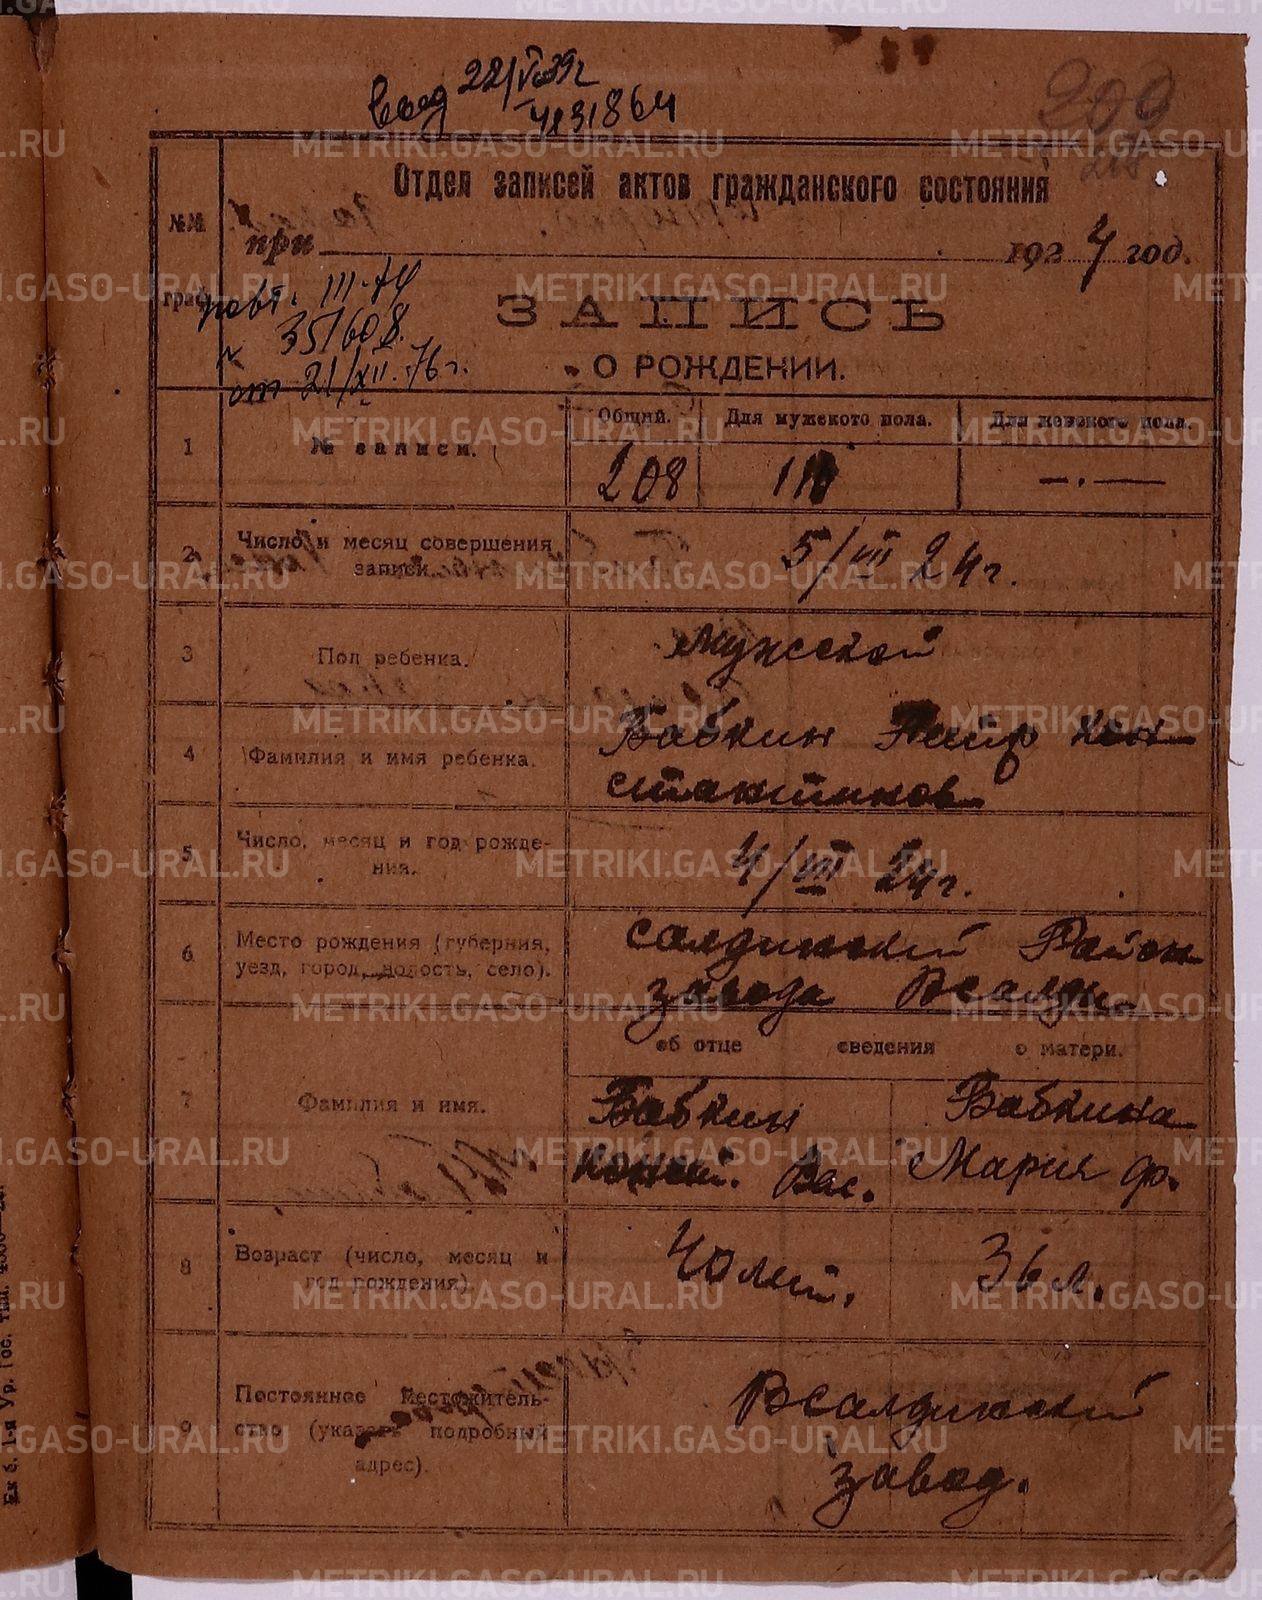 выд 22/V 39г
209
Отдел записей актов гражданского состояния
№№
при 1924 год.
граф
повт. III-
№ 357608.
от 21/XII-76г.
ЗАПИСЬ
О РОЖДЕНИИ.
1
№ записи.
Общий.
Для мужского пола.
Для женского пола.
208
—.—
2
Число и месяц совершения
записи.
5/VIII 24г.
3
Пол ребенка.
Мужской
4
Фамилия и имя ребенка.
Бабкин Петр Кон-
стантинов-
5
Число, месяц и год рожде-
ния.
4/VIII 24г.
6
Место рождения (губерния,
уезд, город, волость, село).
Салдинский Район
завода ВСалды
об отце сведения о матери.
7
Фамилия и имя.
Бабкин
Конст. Вас.
Бабкина
Мария ф.
8
Возраст (число, месяц и
год рождения)
40 лет.
36 л.
9
Постоянное местожитель-
ство (указать подробный
адрес).
ВСалдинский
завод.
METRIKI.GASO-URAL.RU